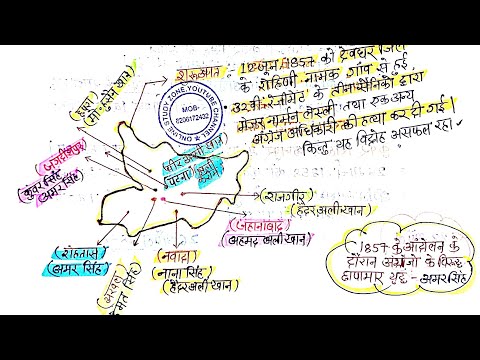 शुरूआत :- 12 जून, 1857 को देवघर जिले
के रोहिणी नामक गाँव से हुई,
32वीं रेजीमेंट के तीन सैनिकों द्वारा
मेजर नार्मन लेस्ली तथा एक अन्य
अंग्रेज अधिकारी की हत्या कर दी गई।
किन्तु यह विद्रोह असफल रहा।
ONLINE STUDY ZONE YOUTUBE CHANNEL
MOB-
8206172432
जगदीशपुर
(कुंवर सिंह
अमर सिंह)
पीर अली खान
(पटना)
राजगीर
(हैदर अली खान)
जहानाबाद
(अहमद अली खान)
रोहतास
(अमर सिंह)
(नवादा)
(नाना सिंह)
(हैदर अली खान)
1857 के आंदोलन के
दौरान अंग्रेजो के विरूद्ध
छापामार युद्ध - अमर सिंह